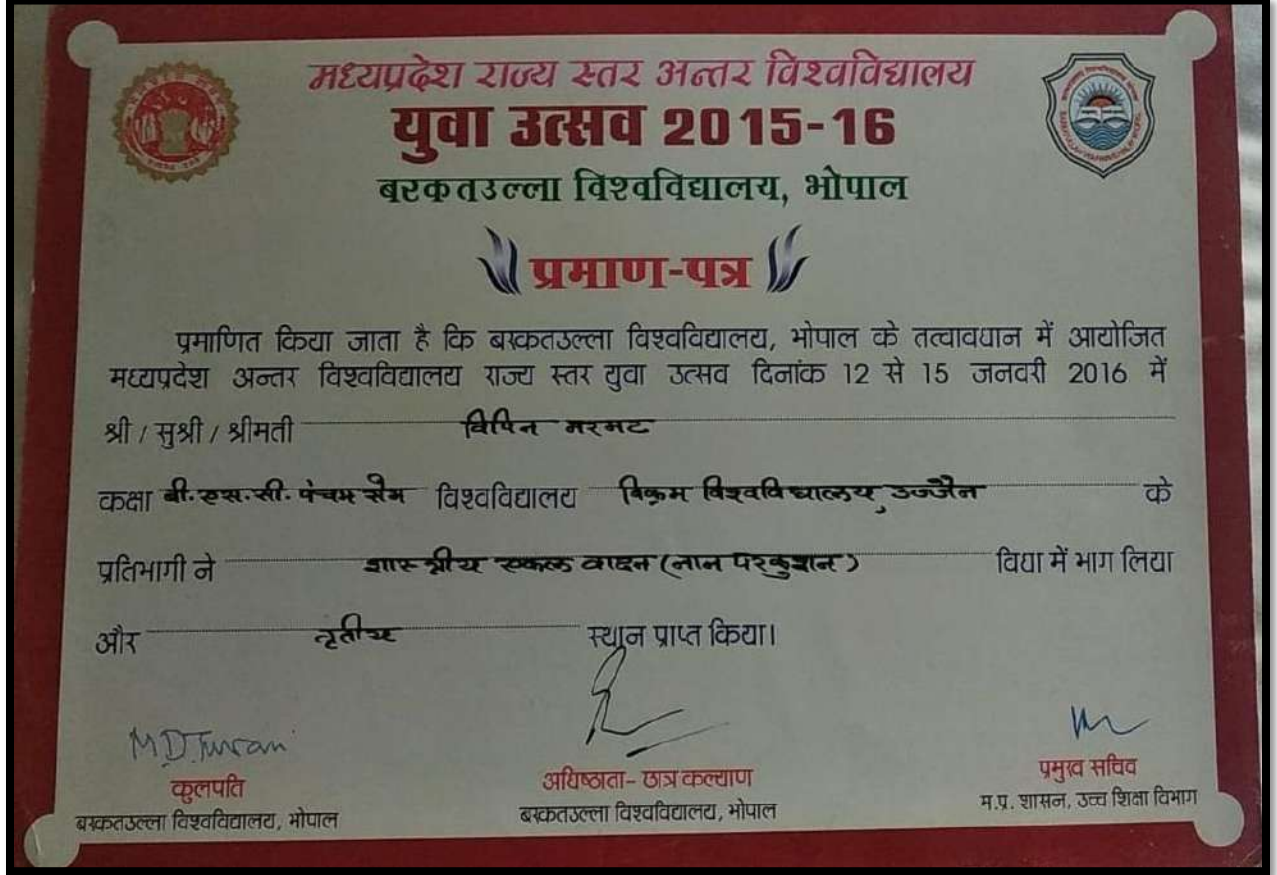 मध्यप्रदेश राज्य स्तर अन्तर विश्वविद्यालय
युवा उत्सव 2015-16
बरकतउल्ला विश्वविद्यालय, भोपाल
प्रमाण-पत्र
प्रमाणित किया जाता है कि बरकतउल्ला विश्वविद्यालय, भोपाल के तत्वावधान में आयोजित
मध्यप्रदेश अन्तर विश्वविद्यालय राज्य स्तर युवा उत्सव दिनांक 12 से 15 जनवरी 2016 में
श्री / सुश्री / श्रीमती विपिन मरमट
कक्षा बी.एस.सी. पंचम सेम विश्वविद्यालय विक्रम विश्वविद्यालय उज्जैन के
प्रतिभागी ने शास्त्रीय एकल वादन (नान परकुशन) विधा में भाग लिया
और तृतीय स्थान प्राप्त किया।
कुलपति
बरकतउल्ला विश्वविद्यालय, भोपाल
अधिष्ठाता- छात्र कल्याण
बरकतउल्ला विश्वविद्यालय, भोपाल
प्रमुख सचिव
म.प्र. शासन, उच्च शिक्षा विभाग